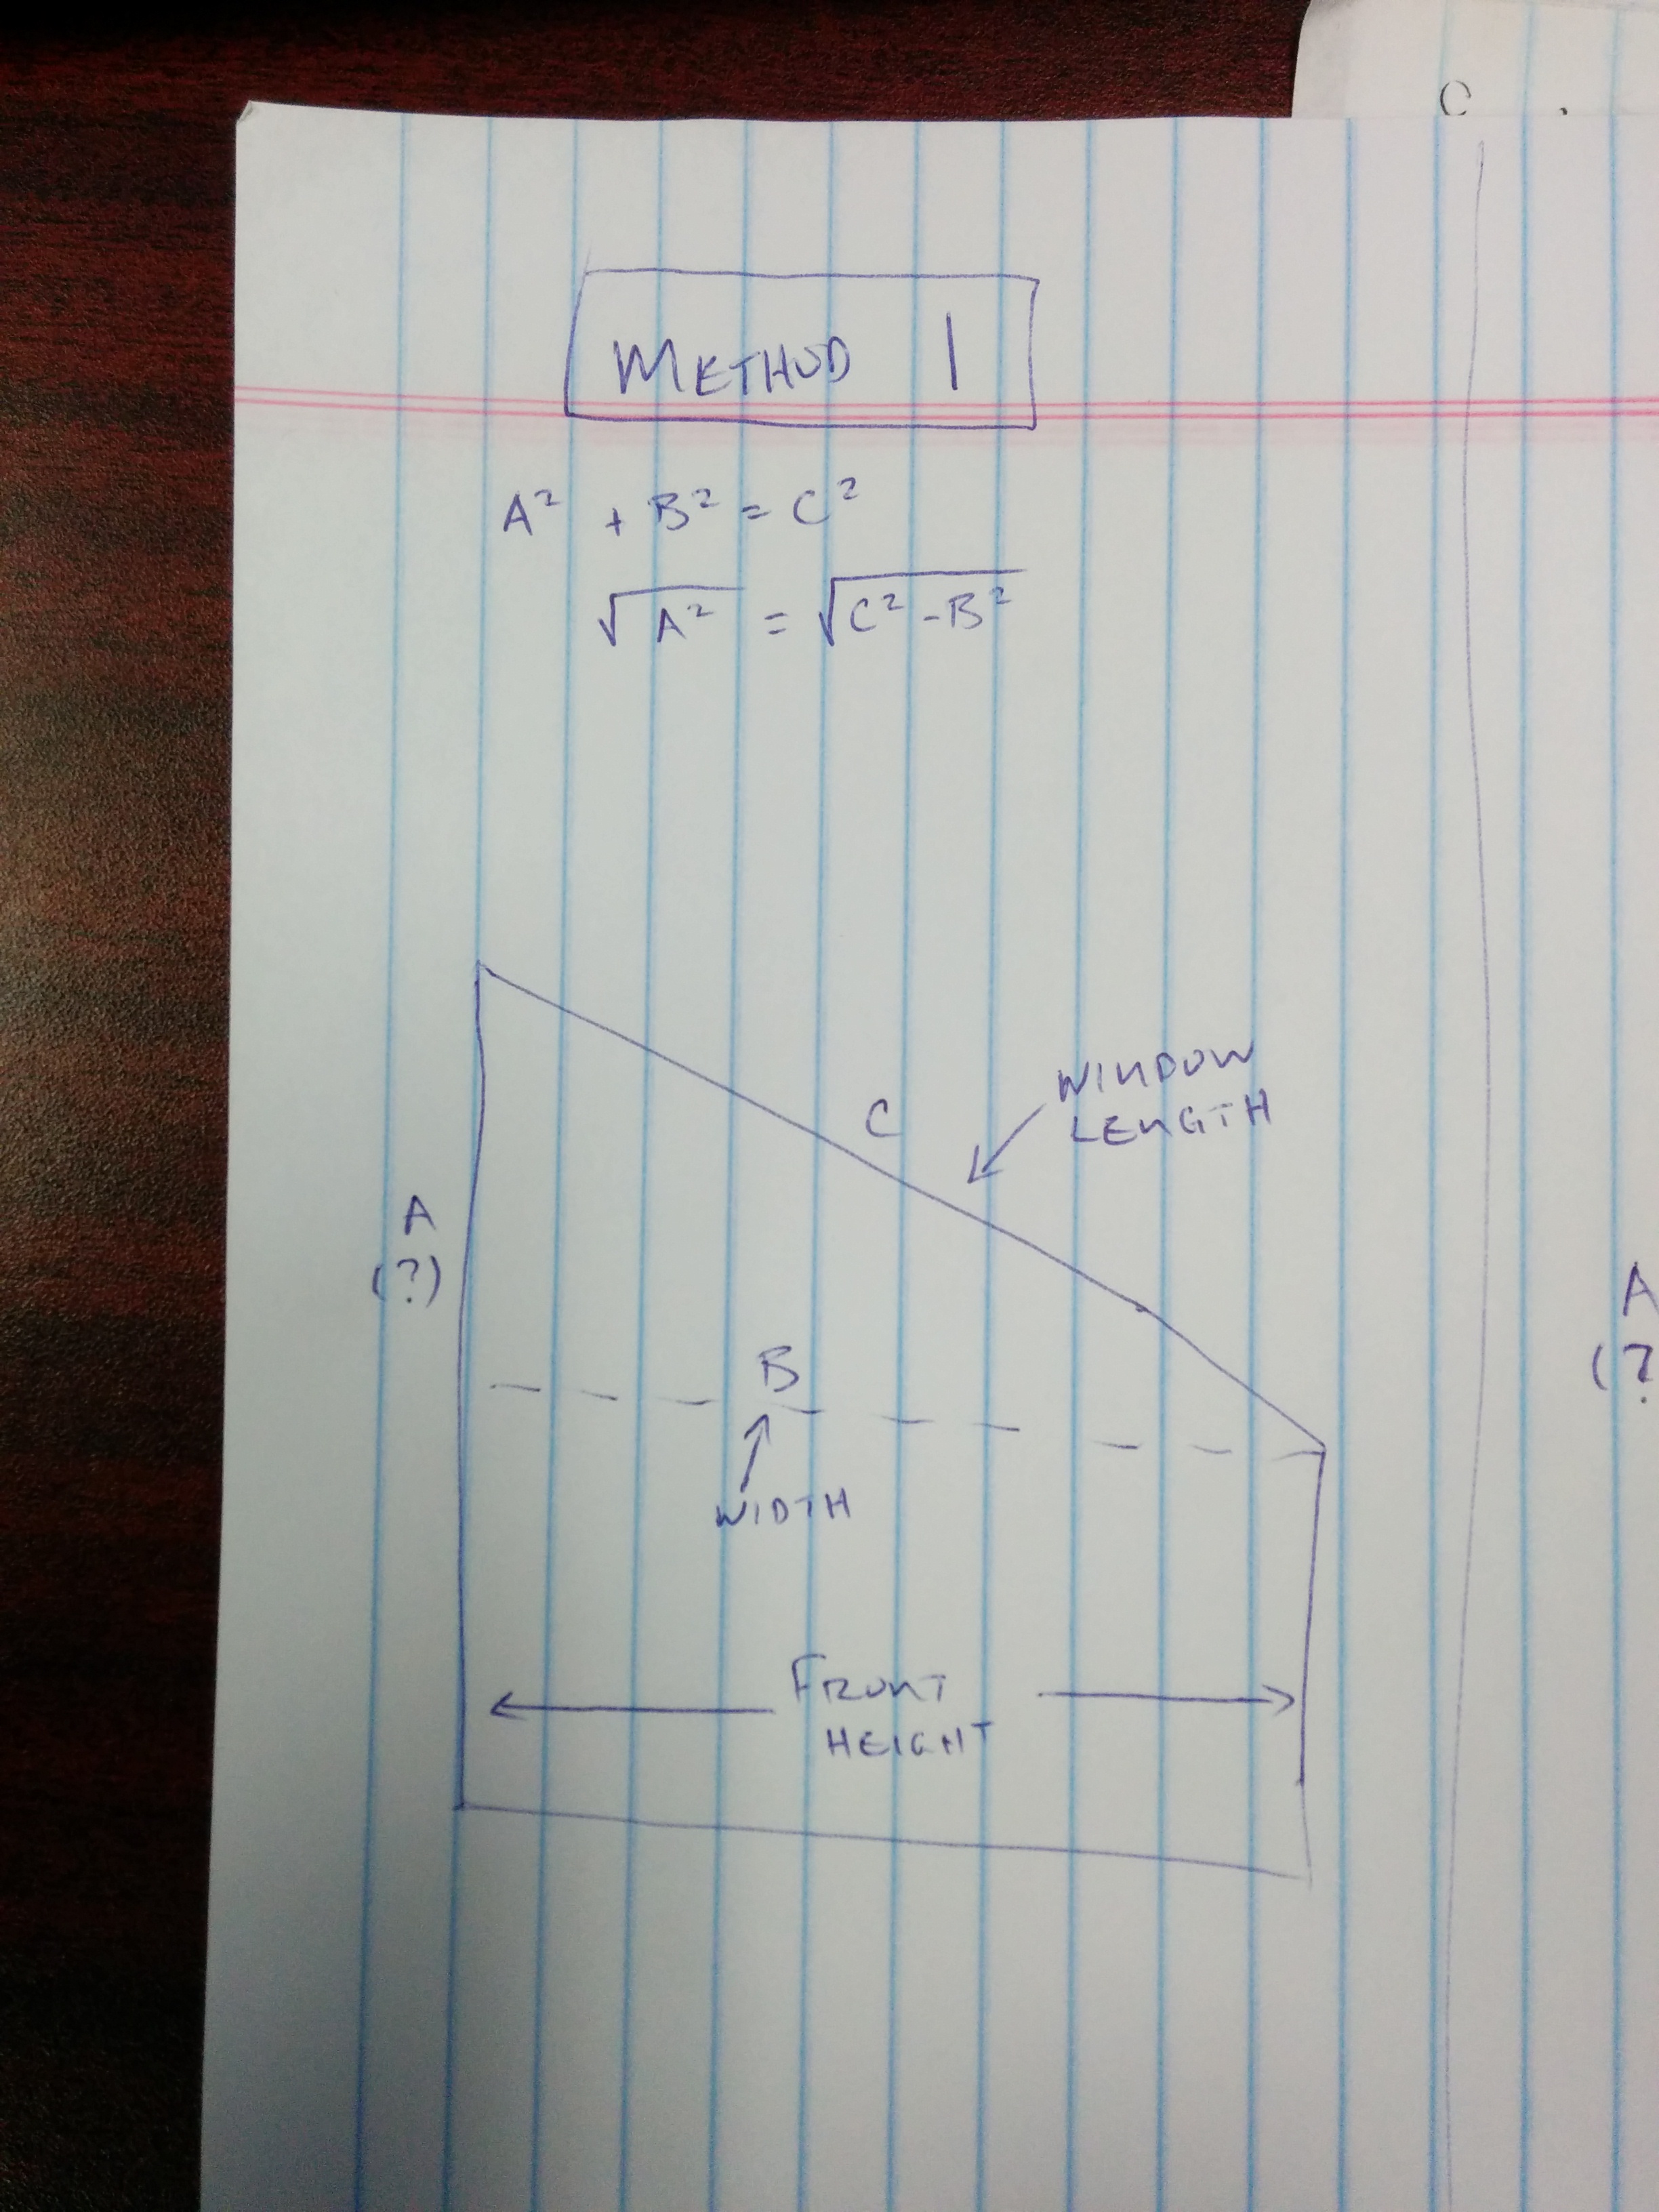 C
METHOD 1
A² + B² = C²
√A² = √C² - B²
C
WINDOW
LENGTH
A
(?)
B
WIDTH
FRONT
HEIGHT
A
(?